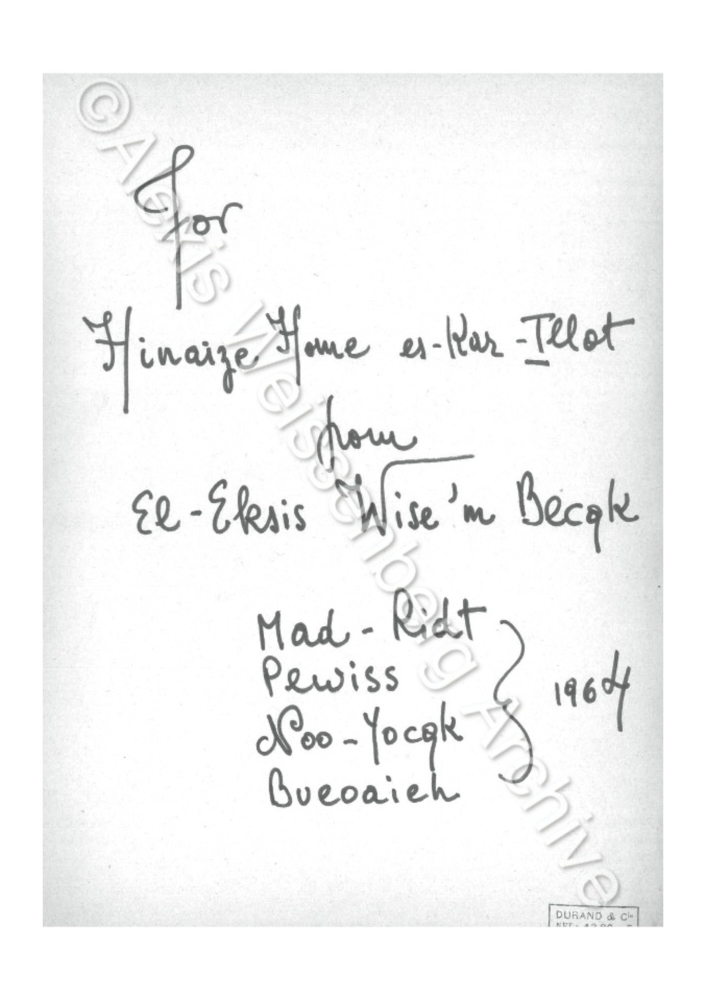 ©Alexis Weissenberg Archive
For
Hinaize Home es-Kar-Illot
from
El-Eksis Wise'm Becqk
Mad-Ridt
Pewiss
Noo-Yocqk
Bueoaieh
1964
DURAND & Cie